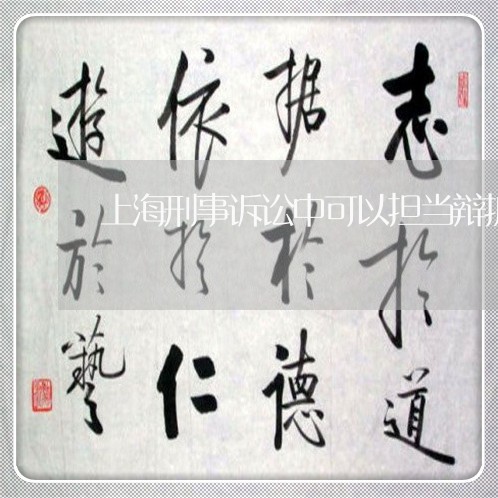 志於道
据於德
依於仁
遊於藝
上海刑事诉讼中可以担当辩